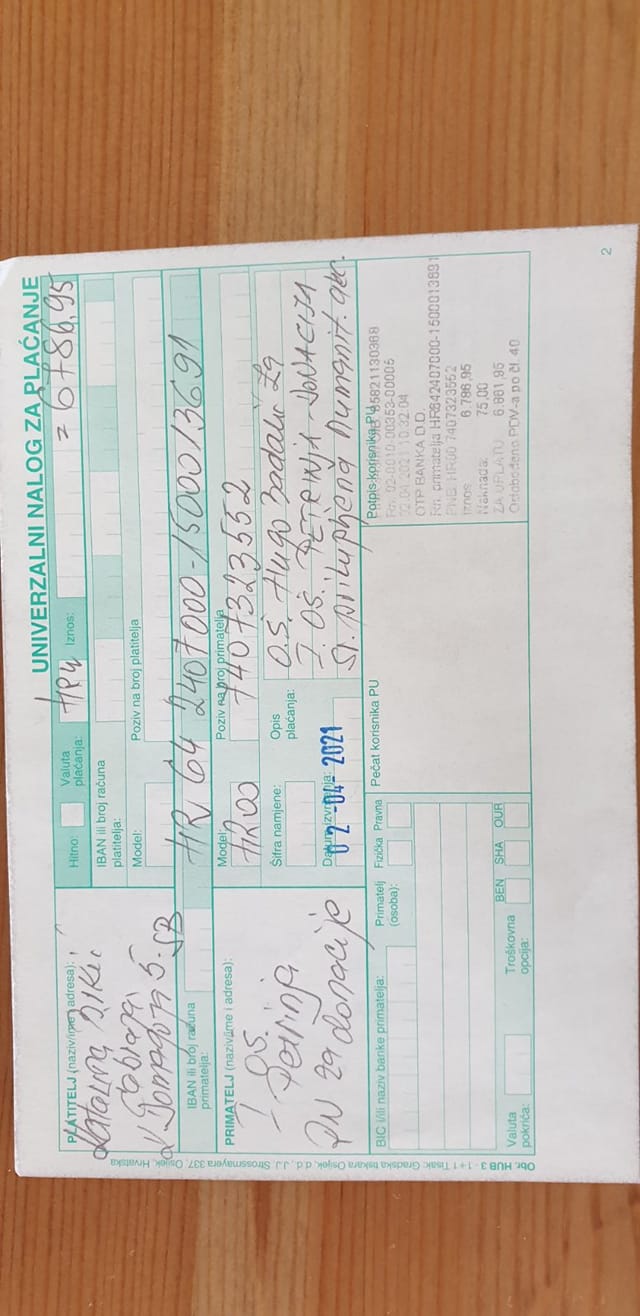 UNIVERZALNI NALOG ZA PLAĆANJE
PLATITELJ (naziv/ime i adresa):
Katarina
K Domagoja 5. SB
Hitno:
Valuta plaćanja:
HRK
Iznos:
= 6786,95
IBAN ili broj računa platitelja:
Model:
Poziv na broj platitelja
IBAN ili broj računa primatelja:
HR 64 2407000-1500013691
PRIMATELJ (naziv/ime i adresa):
I OŠ
Petrinja
PN za donacije
Model:
HR00
Poziv na broj primatelja
7407323552
Šifra namjene:
Opis plaćanja:
O.Š. Hugo Badalić za
I OŠ. PETRINJA - DONACIJA
Št. prikupljena humanit. akc.
Datum izvršenja:
02 -04- 2021
BIC i/ili naziv banke primatelja:
Primatelj (osoba):
Fizička
Pravna
Valuta pokrića:
Troškovna opcija:
BEN
SHA
OUR
Pečat korisnika PU
Potpis korisnika PU
65821130368
Rn: 02-0010-00353-00005
02.04.2021 10:32:04
OTP BANKA D.D.
Rn. primatelja HR6424070000-1500013691
PNB HR00 7407323552
Iznos 6.786,95
Naknada: 75,00
ZA UPLATU 6.861,95
Oslobođeno PDV-a po čl. 40
Obr. HUB 3 - 1+1 Tisak: Gradska tiskara Osijek, d.d., J.J. Strossmayera 337, Osijek, Hrvatska
2